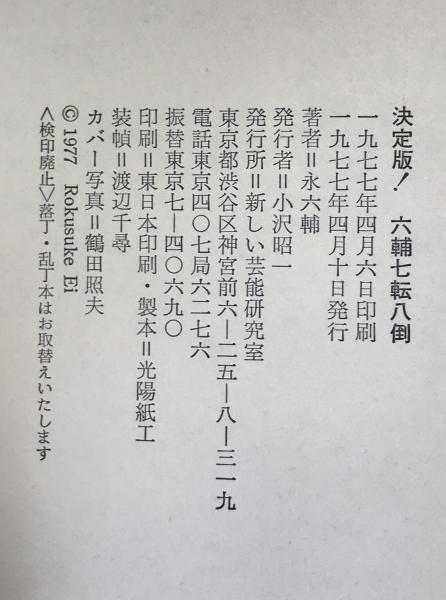 決定版！　六輔七転八倒
一九七七年四月六日印刷
一九七七年四月十日発行
著者＝永六輔
発行者＝小沢昭一
発行所＝新しい芸能研究室
東京都渋谷区神宮前六―二五―八―三一九
電話東京四〇七局六二七六
振替東京七―四〇六九〇
印刷＝東日本印刷・製本＝光陽紙工
装幀＝渡辺千尋
カバー写真＝鶴田照夫
© 1977　Rokusuke Ei
＜検印廃止＞落丁・乱丁本はお取替えいたします